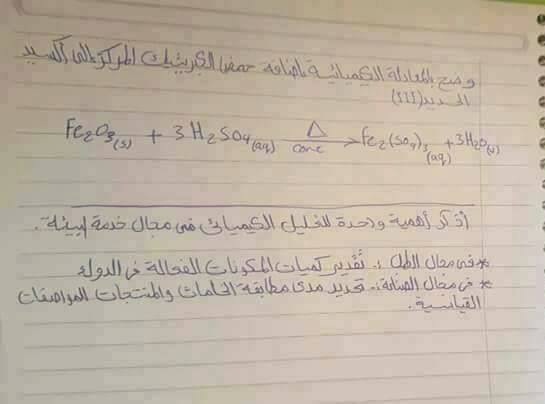 وضح بالمعادلة الكيميائية بإضافة حمض الكبريتيك المركز إلى أكسيد
الحديد (III)
Fe₂O₃(s) + 3H₂SO₄(aq) —Δ/conc→ Fe₂(SO₄)₃(aq) + 3H₂O(v)
أذكر أهمية واحدة للتحليل الكيميائى فى مجال خدمة البيئة.
* فى مجال الطب :. تقدير كميات المكونات الفعالة فى الدواء
* فى مجال الصناعة :. تحديد مدى مطابقة الخامات والمنتجات المواصفات
القياسية.